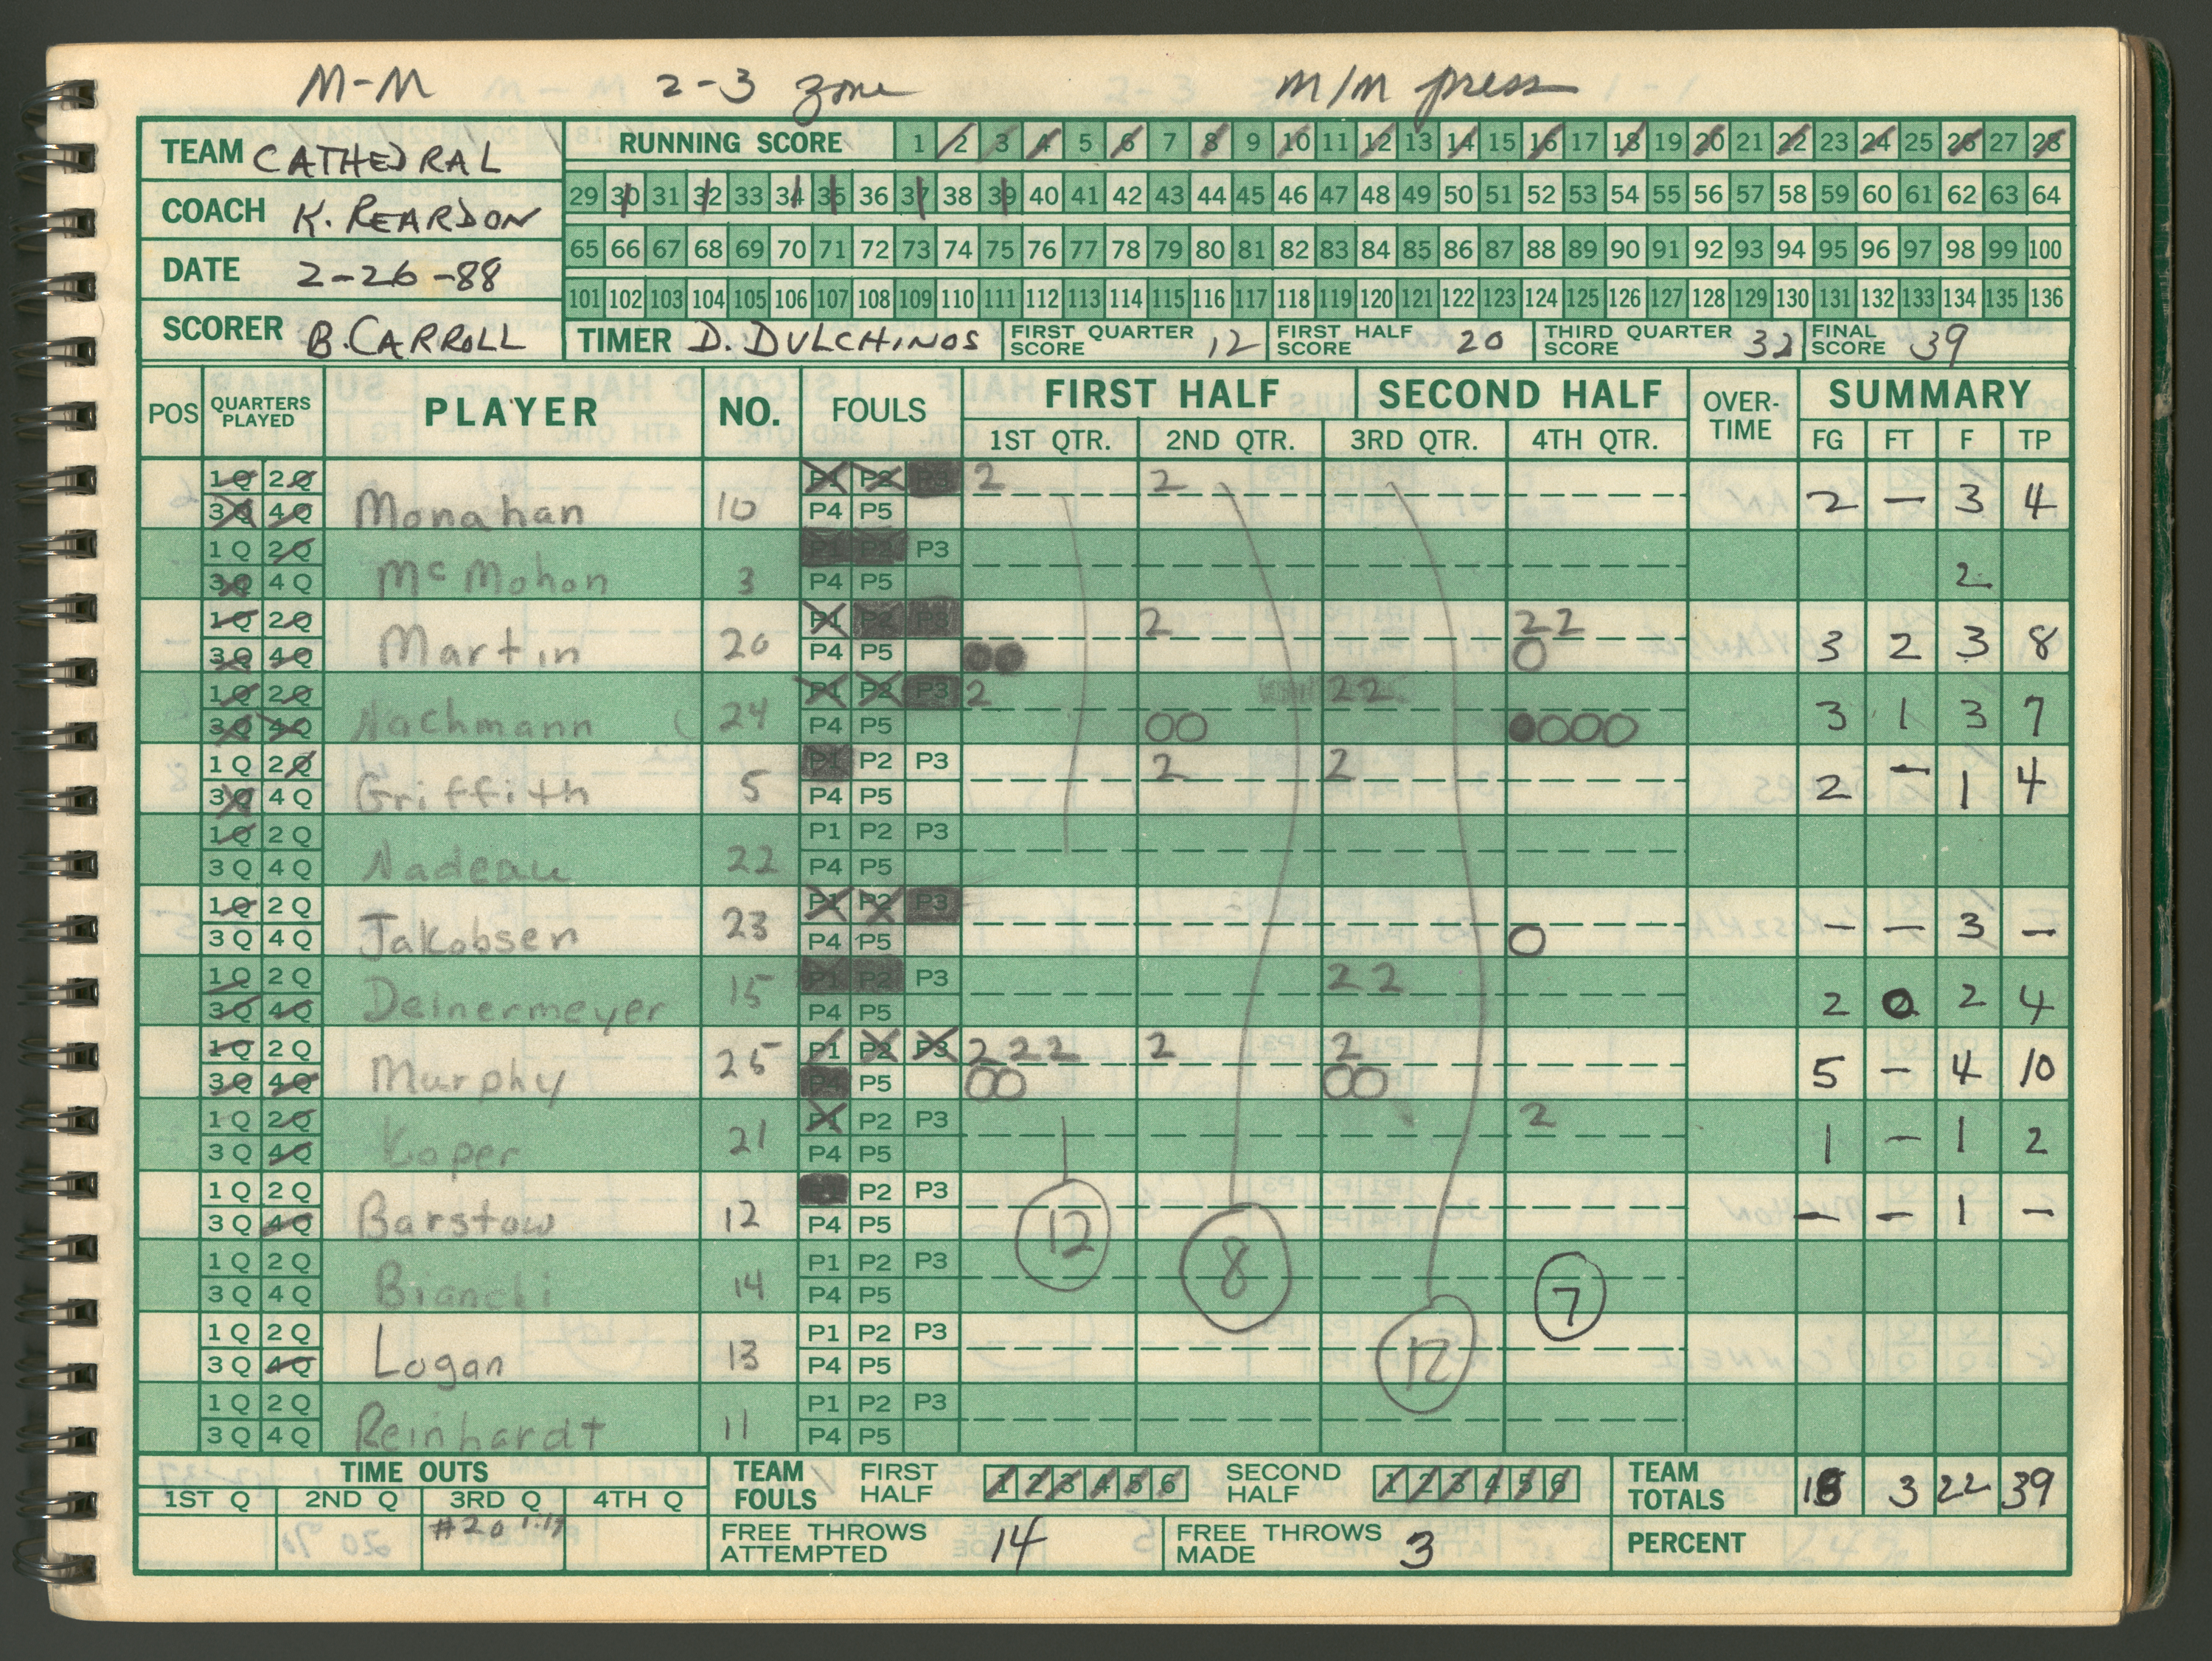 M-M 2-3 zone m/m press
TEAM CATHEDRAL
COACH K. REARDON
DATE 2-26-88
SCORER B. CARROLL
RUNNING SCORE 1 2 3 4 5 6 7 8 9 10 11 12 13 14 15 16 17 18 19 20 21 22 23 24 25 26 27 28
29 30 31 32 33 34 35 36 37 38 39 40 41 42 43 44 45 46 47 48 49 50 51 52 53 54 55 56 57 58 59 60 61 62 63 64
65 66 67 68 69 70 71 72 73 74 75 76 77 78 79 80 81 82 83 84 85 86 87 88 89 90 91 92 93 94 95 96 97 98 99 100
101 102 103 104 105 106 107 108 109 110 111 112 113 114 115 116 117 118 119 120 121 122 123 124 125 126 127 128 129 130 131 132 133 134 135 136
TIMER D. DULCHINOS FIRST QUARTER SCORE 12 FIRST HALF SCORE 20 THIRD QUARTER SCORE 32 FINAL SCORE 39
POS QUARTERS PLAYED PLAYER NO. FOULS FIRST HALF SECOND HALF OVER-TIME SUMMARY
1ST QTR. 2ND QTR. 3RD QTR. 4TH QTR. FG FT F TP
1Q 2Q P1 P2 P3 2 2
3Q 4Q Monahan 10 P4 P5 2 - 3 4
1Q 2Q P1 P2 P3
3Q 4Q McMohon 3 P4 P5 2
1Q 2Q P1 P2 P3 2 2 2
3Q 4Q Martin 20 P4 P5 O 3 2 3 8
1Q 2Q P1 P2 P3 2 2 2
3Q 4Q Nachmann 24 P4 P5 OO OOO 3 1 3 7
1Q 2Q P1 P2 P3 2 2
3Q 4Q Griffith 5 P4 P5 2 - 1 4
1Q 2Q P1 P2 P3
3Q 4Q Nadeau 22 P4 P5
1Q 2Q P1 P2 P3
3Q 4Q Jakobsen 23 P4 P5 O - - 3 -
1Q 2Q P1 P2 P3 2 2
3Q 4Q Deinermeyer 15 P4 P5 2 0 2 4
1Q 2Q P1 P2 P3 2 2 2 2 2
3Q 4Q Murphy 25 P4 P5 OO OO 5 - 4 10
1Q 2Q P1 P2 P3 2
3Q 4Q Koper 21 P4 P5 1 - 1 2
1Q 2Q P2 P3
3Q 4Q Barstow 12 P4 P5 12 - - 1 -
1Q 2Q P1 P2 P3 8
3Q 4Q Bianchi 14 P4 P5 7
1Q 2Q P1 P2 P3
3Q 4Q Logan 13 P4 P5 12
1Q 2Q P1 P2 P3
3Q 4Q Reinhardt 11 P4 P5
TIME OUTS
1ST Q 2ND Q 3RD Q 4TH Q
#20 1:17
TEAM FOULS FIRST HALF 1 2 3 4 5 6 SECOND HALF 1 2 3 4 5 6
TEAM TOTALS 18 3 22 39
FREE THROWS ATTEMPTED 14 FREE THROWS MADE 3 PERCENT